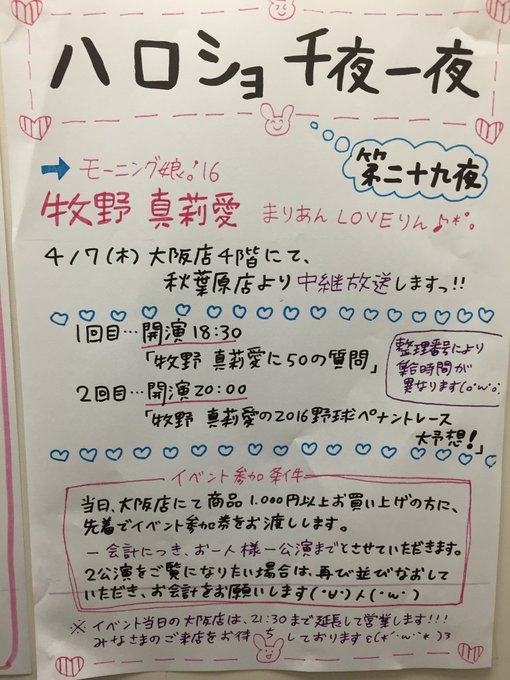 ハロショ千夜一夜
第二十九夜
→ モーニング娘。'16
牧野 真莉愛 まりあん LOVEりん♪*°。
4/7(木)大阪店4階にて、
秋葉原店より中継放送しますっ!!
1回目…開演18:30
「牧野 真莉愛に50の質問」
2回目…開演20:00
「牧野 真莉愛の2016野球ペナントレース
大予想!」
整理番号により
集合時間が
異なります(o'ω'o)
イベント参加条件
当日、大阪店にて商品1,000円以上お買い上げの方に、
先着でイベント参加券をお渡しします。
一会計につき、お一人様一公演までとさせていただきます。
2公演をご覧になりたい場合は、再び並びなおして
いただき、お会計をお願いします(・∀・)人(・ω・)
※イベント当日の大阪店は、21:30まで延長して営業します!!!
みなさまのご来店をお待ちしております ε(*´ω`*)з